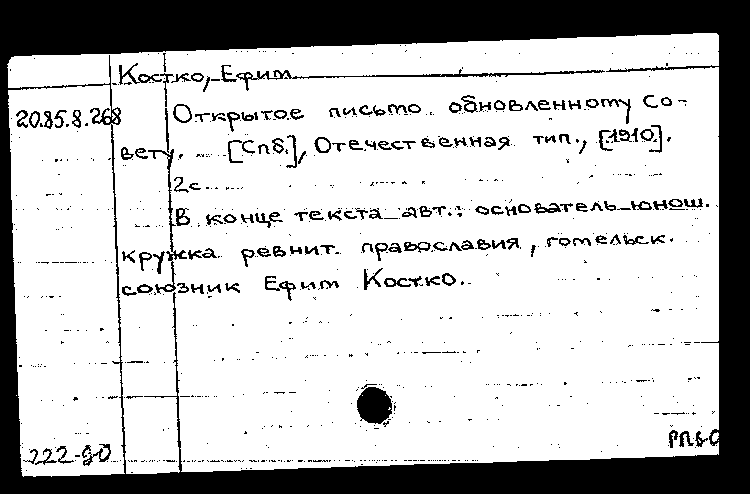 Костко, Ефим
20.85.8.268 Открытое письмо обновленному Со-
вету. [Спб.], Отечественная тип., [1910].
2с
В конце текста авт.: основатель юнош.
кружка ревнит. православия, гомельск.
союзник Ефим Костко.
222-90